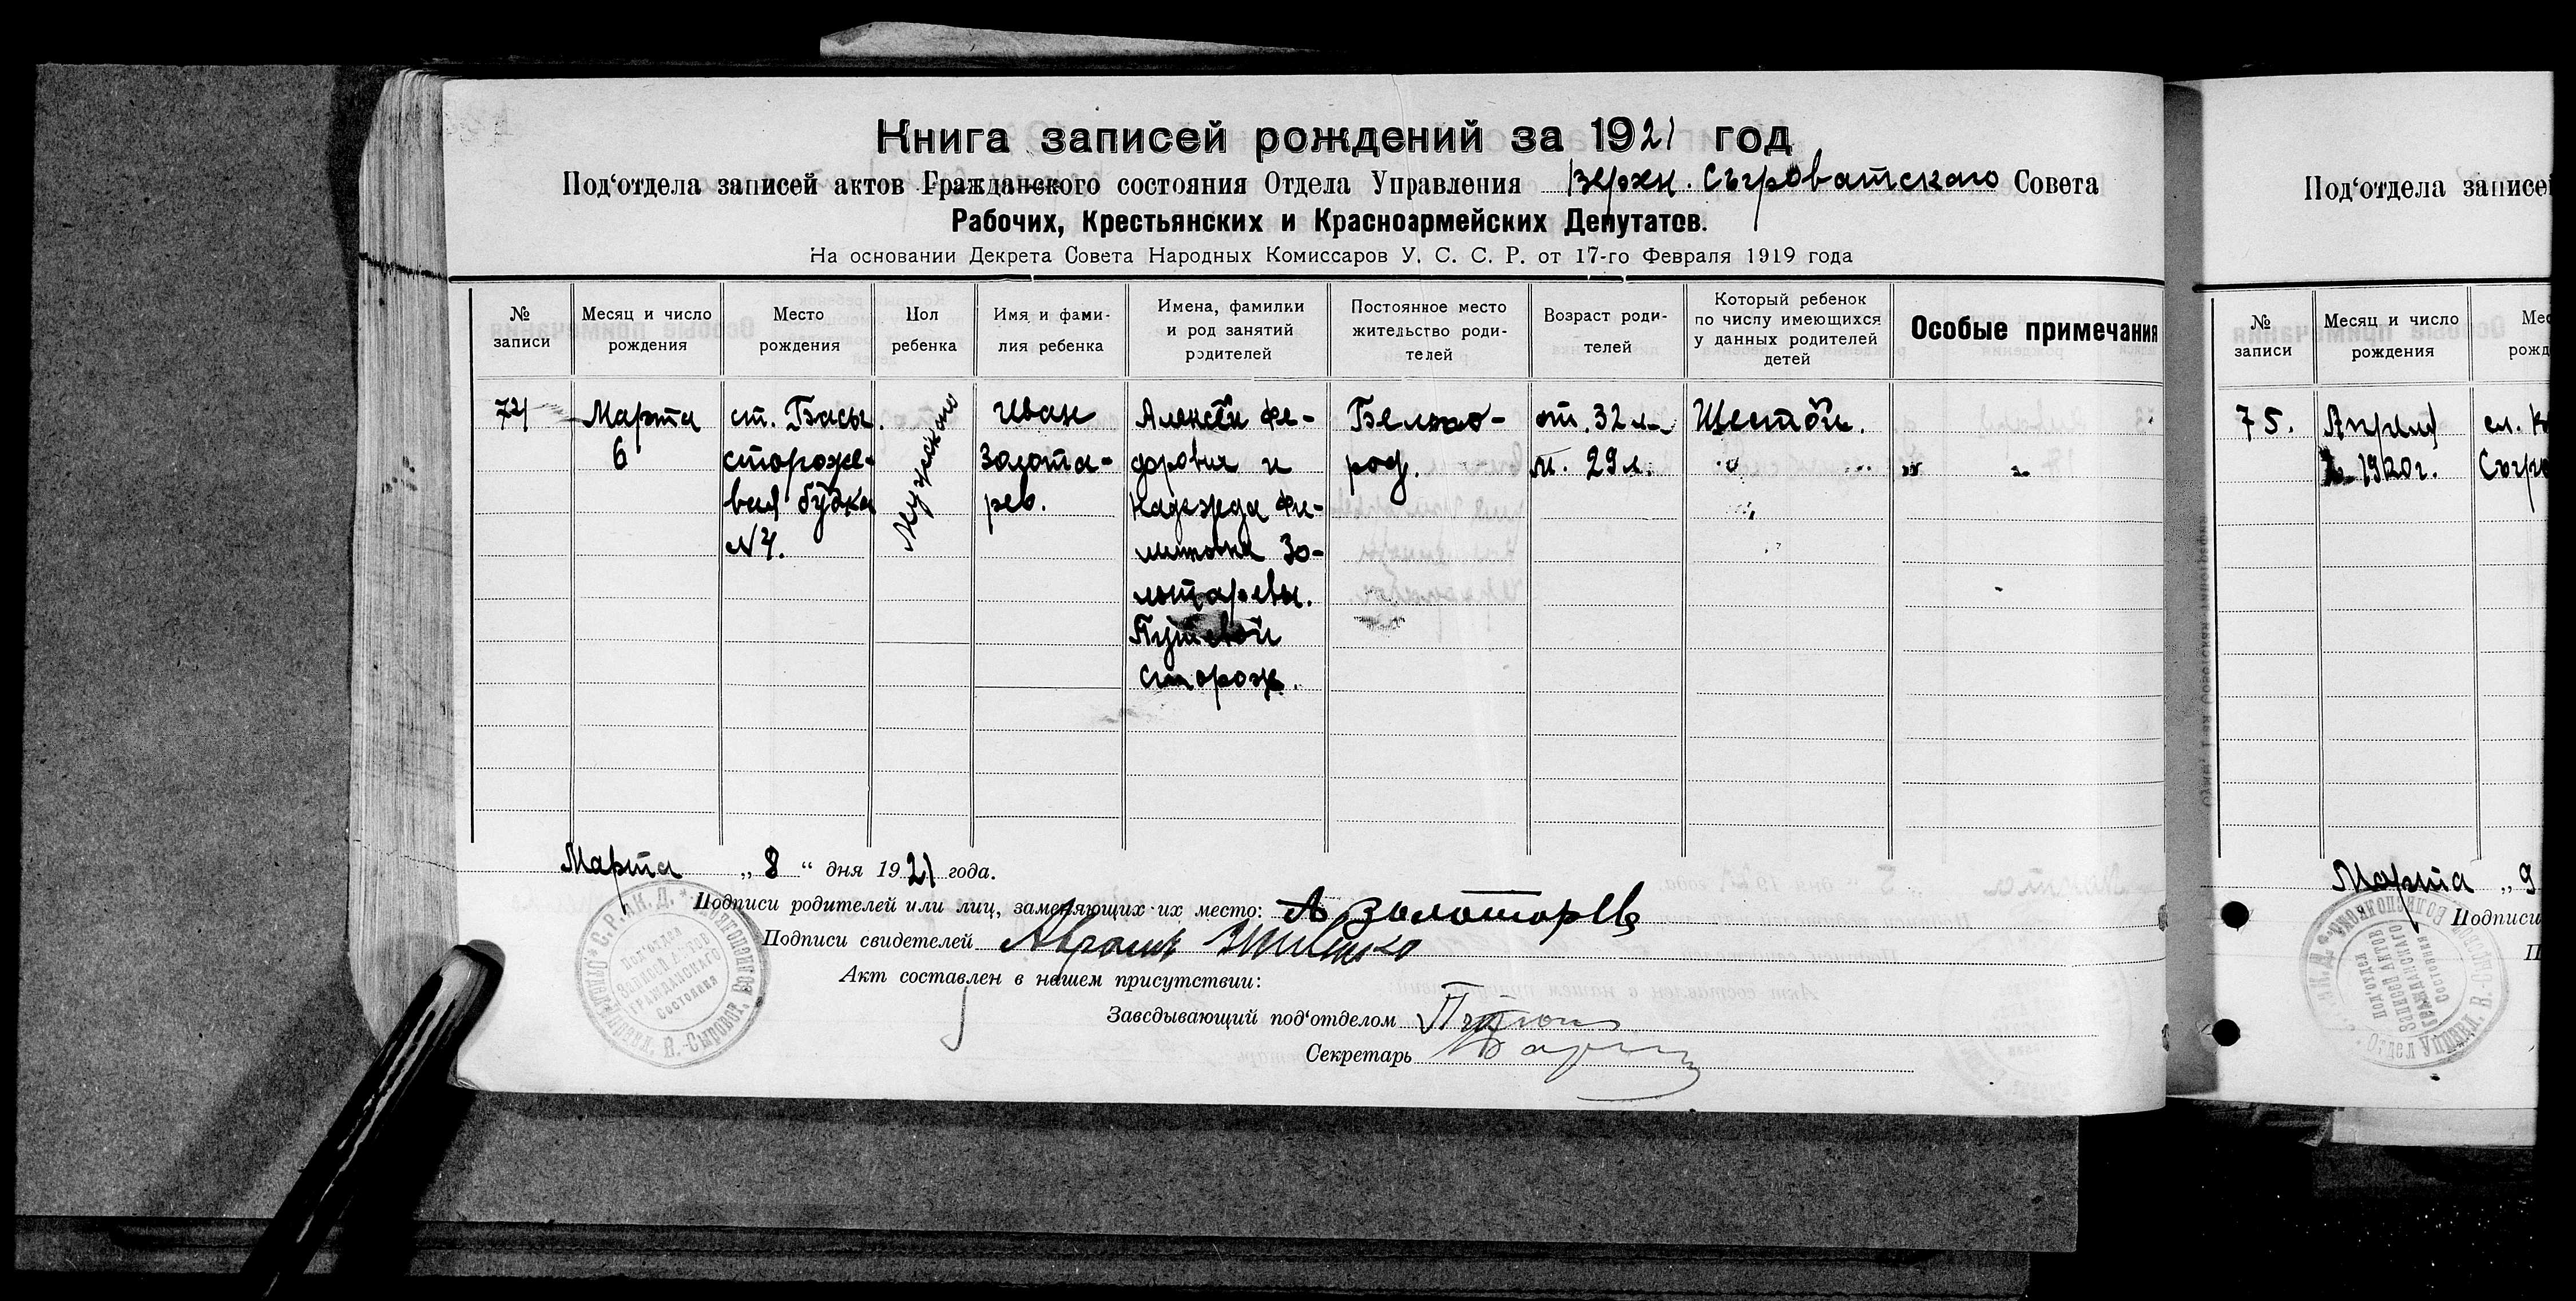 Книга записей рождений за 1921 год
Под‘отдела записей актов Гражданского состояния Отдела Управления Верхн. Сыроватскаго Совета
Рабочих, Крестьянских и Красноармейских Депутатов.
На основании Декрета Совета Народных Комиссаров У. С. С. Р. от 17-го Февраля 1919 года
№ записи
Месяц и число рождения
Место рождения
Пол ребенка
Имя и фами-
лия ребенка
Имена, фамилии
и род занятий
родителей
Постоянное место
жительство роди-
телей
Возраст роди-
телей
Который ребенок
по числу имеющихся
у данных родителей
детей
Особые примечания
74
Марта
6
ст. Басы
стороже-
вая будка
№ 4.
Мужскаго
Иван
Золота-
рев.
Алексей Фе-
дорович и
Надежда Фи-
Зо-
лотаревы.
Путевой
сторож.
Белго-
род.
от. 32 л.
м. 29 л.
Шестой.
Марта „ 8 “ дня 1921 года.
Подписи родителей или лиц, заменяющих их место: А Золотарев
Подписи свидетелей
Акт составлен в нашем присутствии:
Заведывающий под‘отделом
Секретарь
Под‘отдел
Записей Актов
ГРАЖДАНСКАГО
Состояния
Под‘отдела записей
№ записи
Месяц и число
рождения
75.
Апреля
1920г.
Марта „ 9
Подписи
Под‘отдел
Записей Актов
ГРАЖДАНСКАГО
Состояния